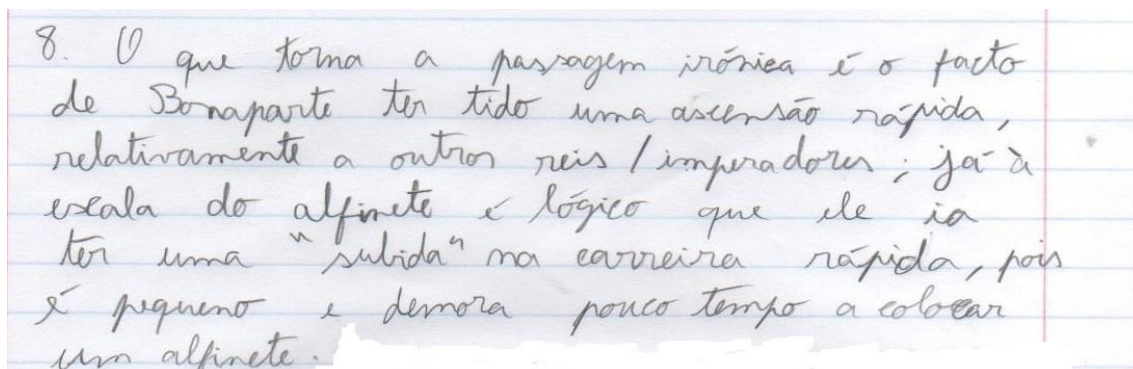 8. O que torna a passagem irónica é o facto
de Bonaparte ter tido uma ascensão rápida,
relativamente a outros reis / imperadores; já à
escala do alfinete é lógico que ele ia
ter uma "subida" na carreira rápida, pois
é pequeno e demora pouco tempo a colocar
um alfinete.